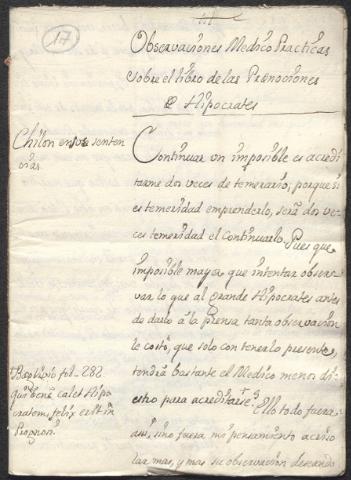 17
Observaciones Medico Practicas
sobre el libro de las Prenociones
de Hipocrates
Chilon en sus senten
cias.
Continuar un imposible es acredi
tarme dos veces de temerario; porque si
es temeridad emprenderlo, será dos ve-
ces temeridad el continuarlo. Pues que
imposible mayor que intentar obser-
var lo que al grande Hipocrates antes
de darlo à la prensa tanta observacion
le costò, que solo con tenerlo presente
tendrà bastante el Medico menos di-
estro para acreditarse. Ello todo fuera
asi, sino fuera mi pensamiento acriso
lar mas, y mas su observacion deseando
fol. 282.
qui bene calet Hipo
cratem, felix erit in
Prognos.